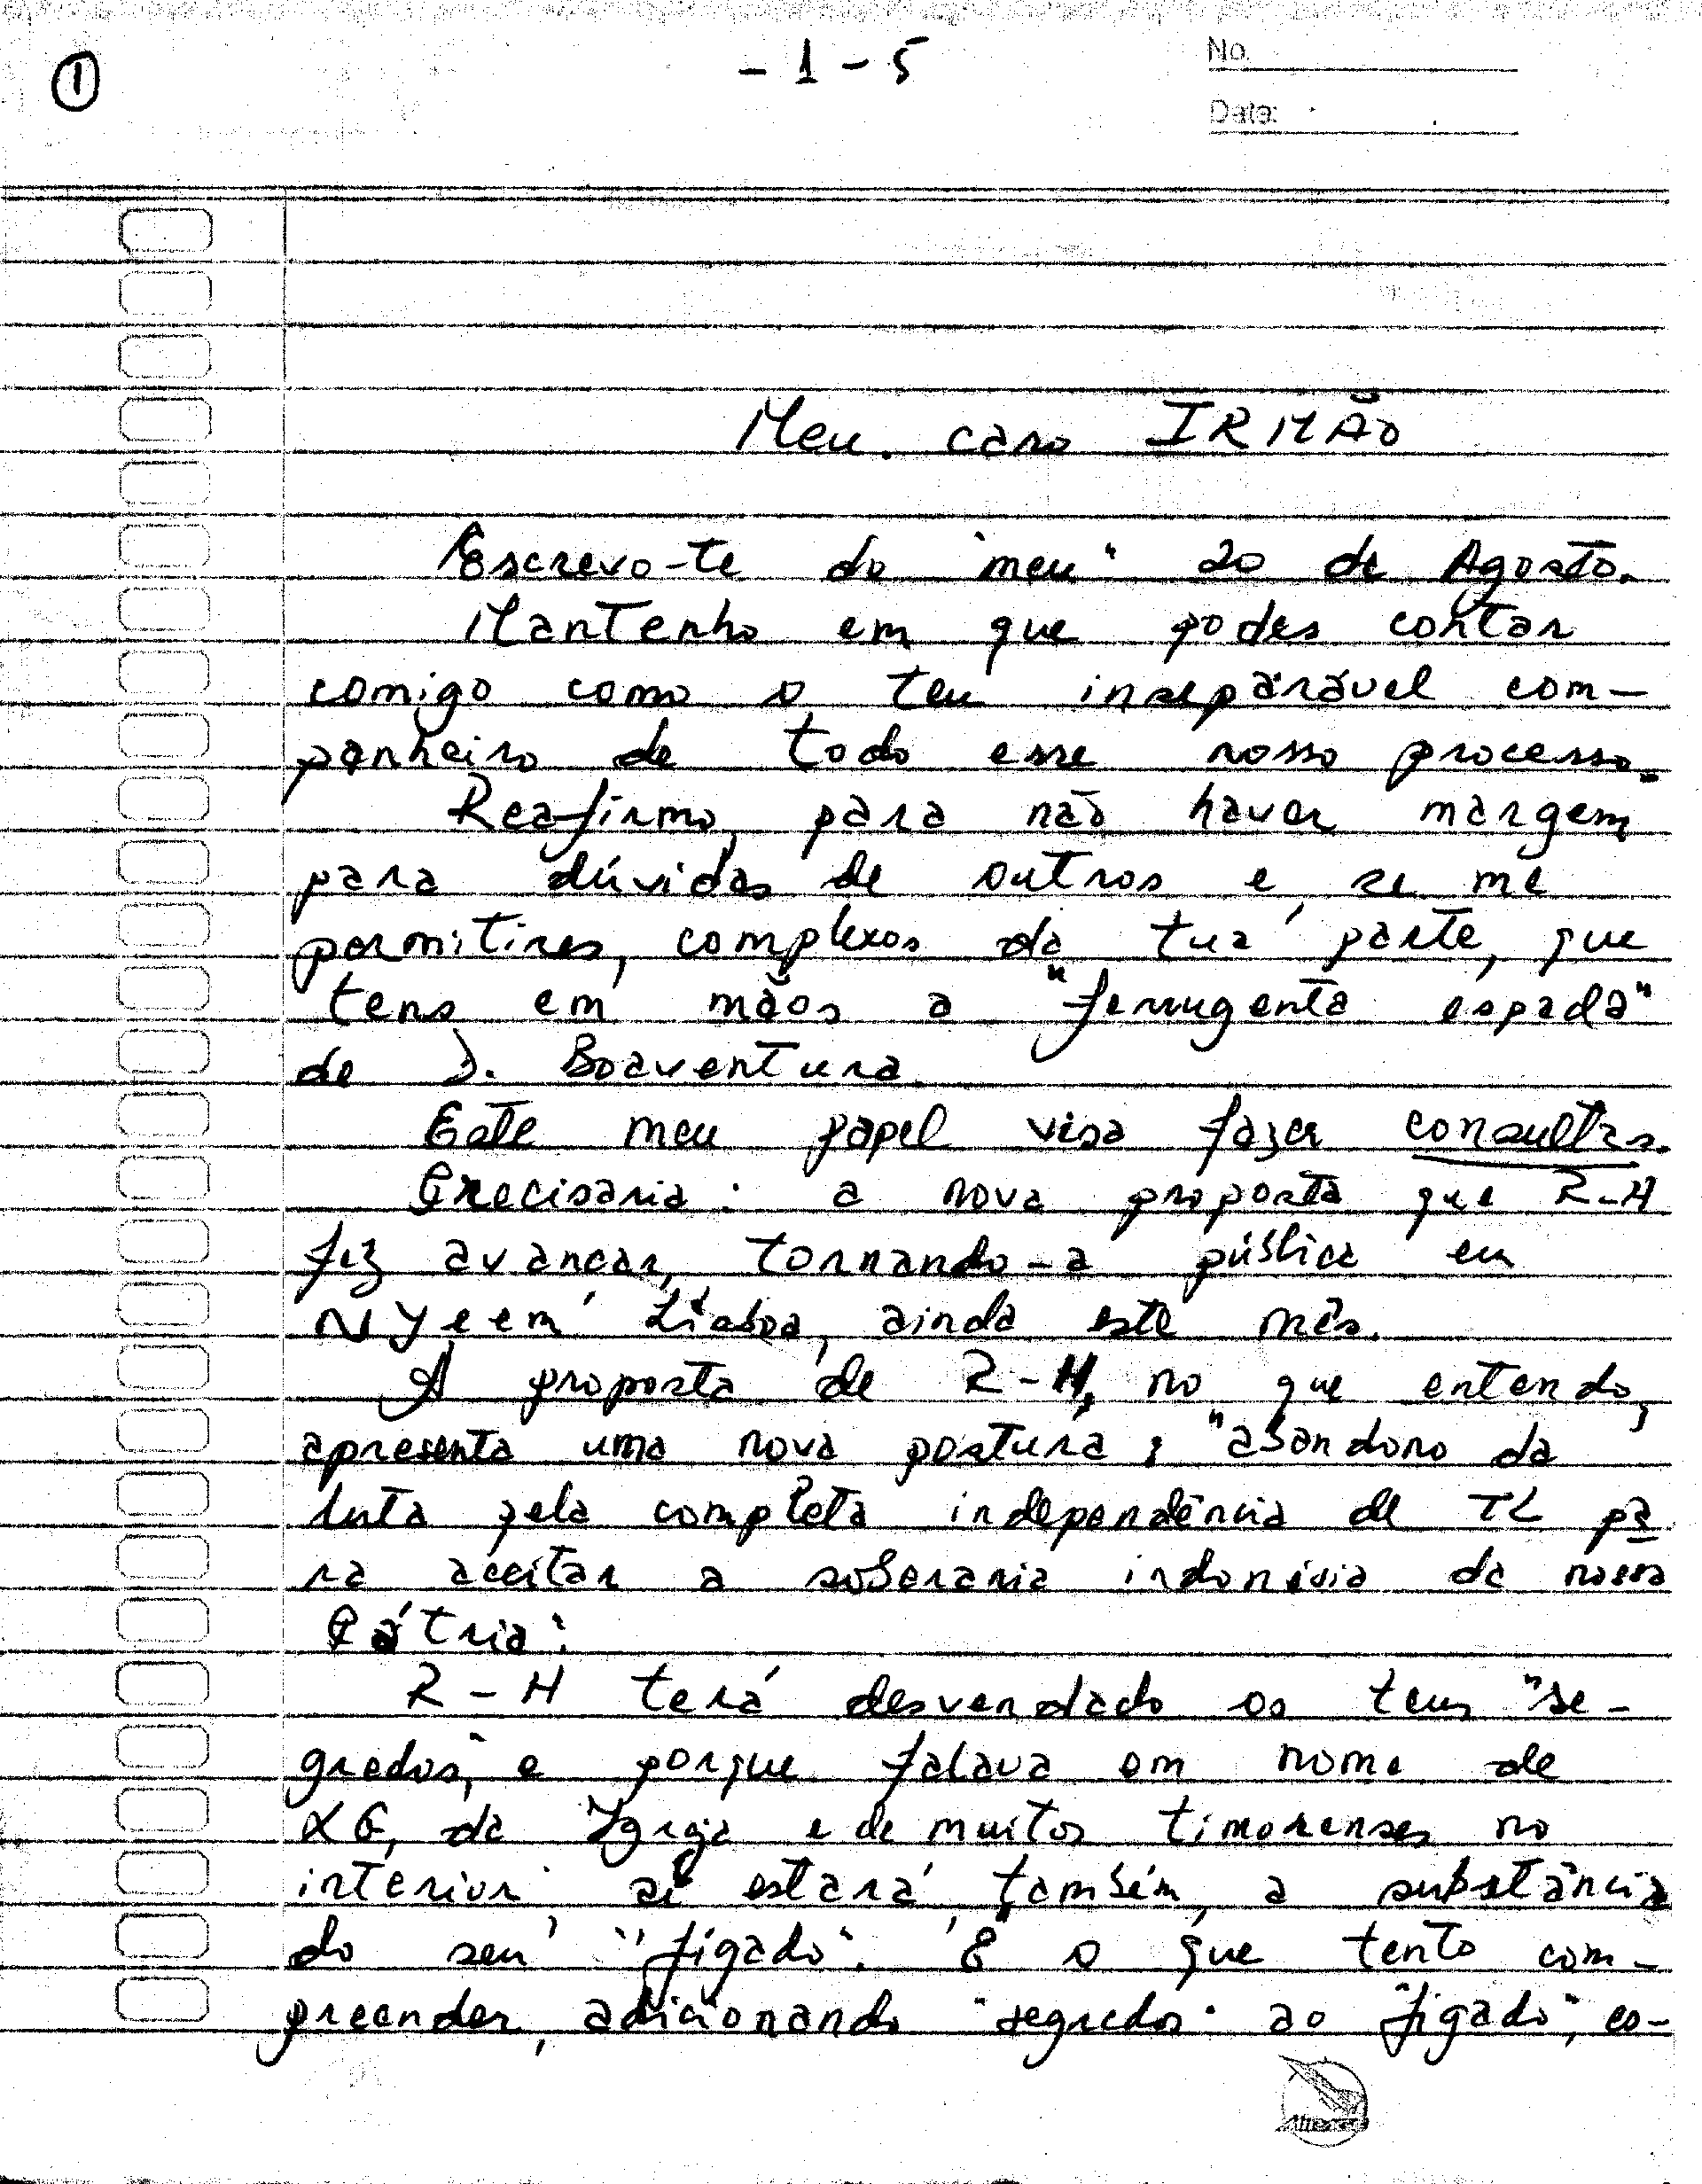 ①
- 1 - 5
No.
Date:
Meu caro IRMÃO
Escrevo-te do "meu" 20 de Agosto.
Mantenho em que podes contar
comigo como o teu inseparável com-
panheiro de todo esse nosso processo.
Reafirmo, para não haver margem
para dúvidas de outros e se me
permitires, complexos da tua parte, que
tens em mãos a "ferrugenta espada"
de D. Boaventura.
Este meu papel visa fazer consultas.
Precisaria: a nova proposta que R-H
fez avancar, tornando-a pública em
NY e em Lisboa, ainda este mês.
A proposta de R-H, no que entendo,
apresenta uma nova postura: "abandono da
luta pela completa independência de TL pa
ra aceitar a soberania indonésia da nossa
Pátria".
R-H terá desvendado os teus "se-
gredos", e porque falava em nome de
XG, da Igreja e de muitos timorenses no
interior, aí estará, também, a substância
do seu "fígado". É o que tento com-
preender, adicionando "segredos" ao "fígado", co-